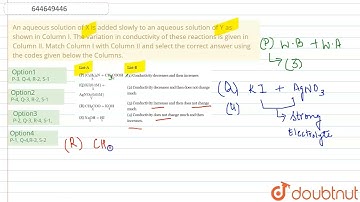 644649446
An aqueous solution of X is added slowly to an aqueous solution of Y as
shown in Column I. The variation in conductivity of these reactions is given in
Column II. Match Column I with Column II and select the correct answer using
the codes given below the Columns.
Option1
P-3, Q-4, R-2, S-1
Option2
P-4, Q-3, R-2, S-1
Option3
P-2, Q-3, R-4, S-1
Option4
P-1, Q-4,R-3, S-2
(1) Conductivity decreases and then increases
(2) Conductivity decreases and then does not change
much
(3) Conductivity increases and then does not change
much
(4) Conductivity does not change much and then
increases.
(P) W·B + W·A
↳ (3)
(Q) KI + AgNO3
(4)
↳ strong
Electrolyte
(R) CH
doubtnut